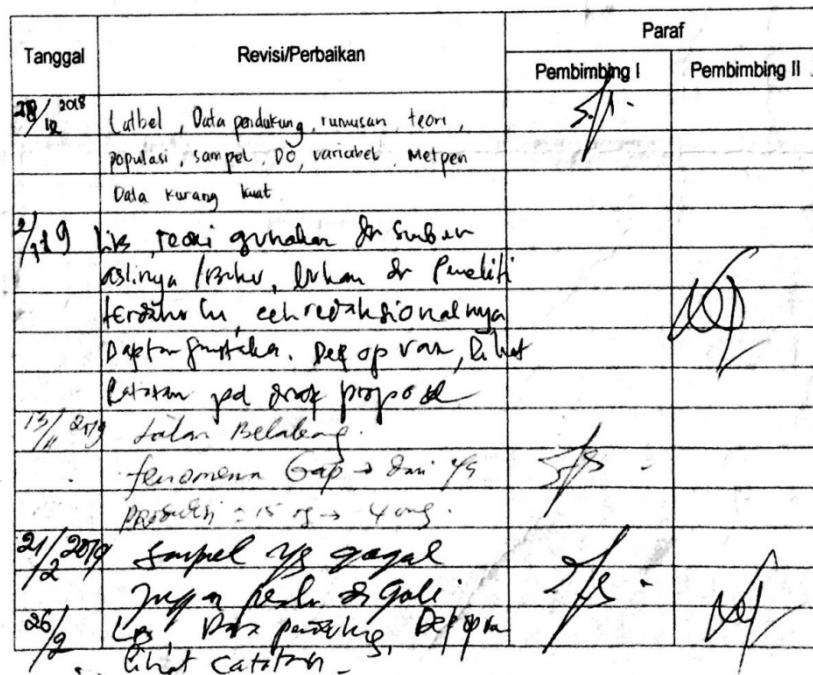 Tanggal Revisi/Perbaikan Paraf
Pembimbing I Pembimbing II
28/12 2018 Latbel, Data pendukung, rumusan, teori,
populasi, sampel, DO, variabel, Metpen
Data kurang kuat
teori gunakan dr Sumber
aslinya / Buku, bukan dr Peneliti
terdahulu, cek redaksionalnya
Daftar Pustaka. Def op var, lihat
Catatan pd drop proposal
13/ 2019 Latar Belakang.
fenomena Gap → dari yg
Produksi = 15 → 4
21/2 2019 Sampel yg gagal
juga perlu di gali.
26/2 Data pendukung, Def op var
lihat catatan